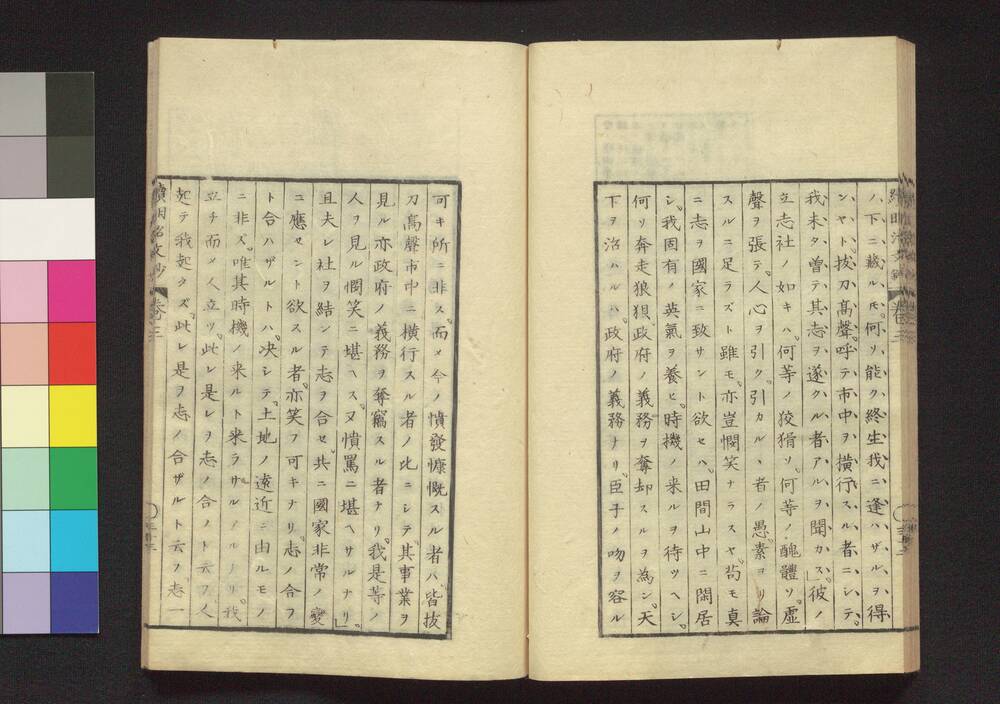 ノ、下ニ蔵ル氏。何ソ、能ク、終生、我ニ、逢ハ、ザル、ヲ得
ンヤト、抜刀高聲、呼テ市中ヲ、横行、スル、者ニシテ、
我未タ、曽テ、其志ヲ、遂クル、者アルヲ、聞カス」彼ノ
立志社ノ如キハ、何等ノ狡猾ソ。何等ノ醜體ソ。虚
聲ヲ張テ、人心ヲ引ク。引カル、者ノ愚素ヨリ論
スルニ足ラズト雖モ、亦豈憫笑ナラスヤ。苟モ真
ニ志ヲ國家ニ致サント欲セハ、田間山中ニ閑居
シ。我固有ノ英氣ヲ養ヒ。時機ノ来ルヲ待ツヘシ。
何ソ奔走狼狽政府ノ義務ヲ奪却スルヲ為ン。天
下ヲ治ハルハ、政府ノ義務ナリ。臣子ノ吻ヲ容ル
可キ所ニ非ス。而メ今ノ憤發慷慨スル者ハ、皆抜
刀高聲市中ニ横行スル者ノ此ニシテ、其事業ヲ
見ル亦政府ノ義務ヲ奪竊スル者ナリ。我是等ノ
人ヲ見ル憫笑ニ堪ヘス。又憤罵ニ堪ヘサルナリ。」
且夫レ社ヲ結ンテ志ヲ合セ。共ニ國家非常ノ變
ニ應セント欲スル者、亦笑フ可キナリ。志ノ合フ
ト合ハザルトハ、决シテ、土地ノ遠近ニ由ルモノ
ニ非ズ。唯其時機ノ来ルト来ラザルノ我
立チ而メ人立ツ。此レ是レヲ志ノ合ノト云フ人
起テ我起タズ。此レ是ヲ志ノ合ザルト云フ。志一
續明治文鈔 卷之三